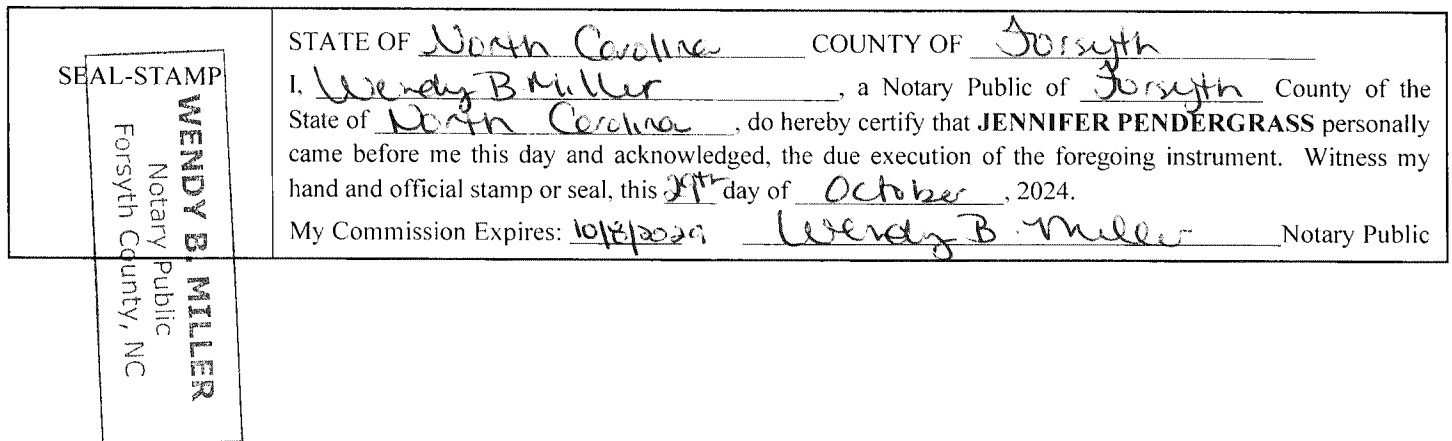 SEAL-STAMP
WENDY B. MILLER
Notary Public
Forsyth County, NC
STATE OF North Carolina COUNTY OF Forsyth
I, Wendy B Miller, a Notary Public of Forsyth County of the
State of North Carolina, do hereby certify that JENNIFER PENDERGRASS personally
came before me this day and acknowledged, the due execution of the foregoing instrument. Witness my
hand and official stamp or seal, this 29th day of October, 2024.
My Commission Expires: 10/8/2029 Wendy B. Miller Notary Public